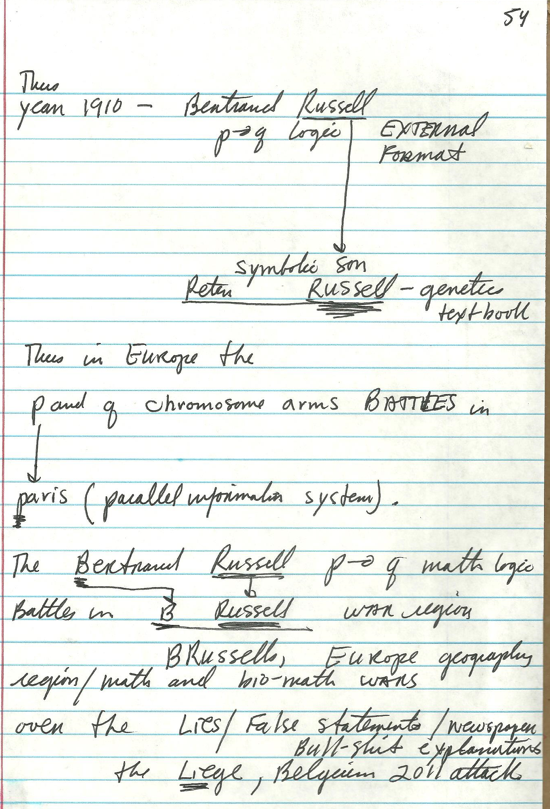 54
Thus
year 1910 – Bertrand Russell
p→q logic EXTERNAL
FORMAT
symbolic son
Peter Russell – genetics
textbook
Thus in Europe the
p and q chromosome arms BATTLES in
paris (parallel information system).
The Bertrand Russell p→q math logic
Battles in B Russell WAR region
BRussells, Europe geography
region/math and bio-math wars
over the Lies/False statements/newspaper
Bull-shit explanations
the Liege, Belgium 2011 attack